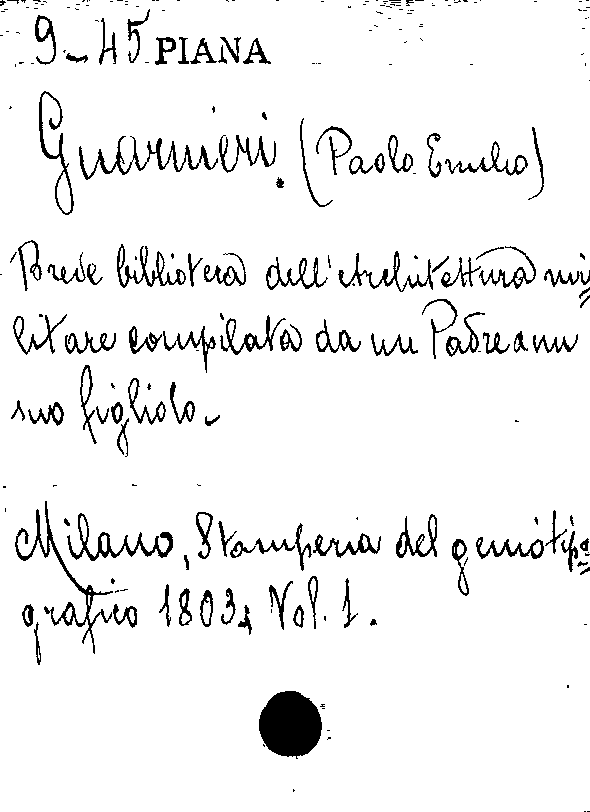 9-45 PIANA
Guarnieri. (Paolo Emilio)
Breve biblioteca dell'Architettura mi=
litare compilata da un Padre a un
suo figliolo-
Milano, Stamperia del genio tipo=
grafico 1803, Vol. 1.